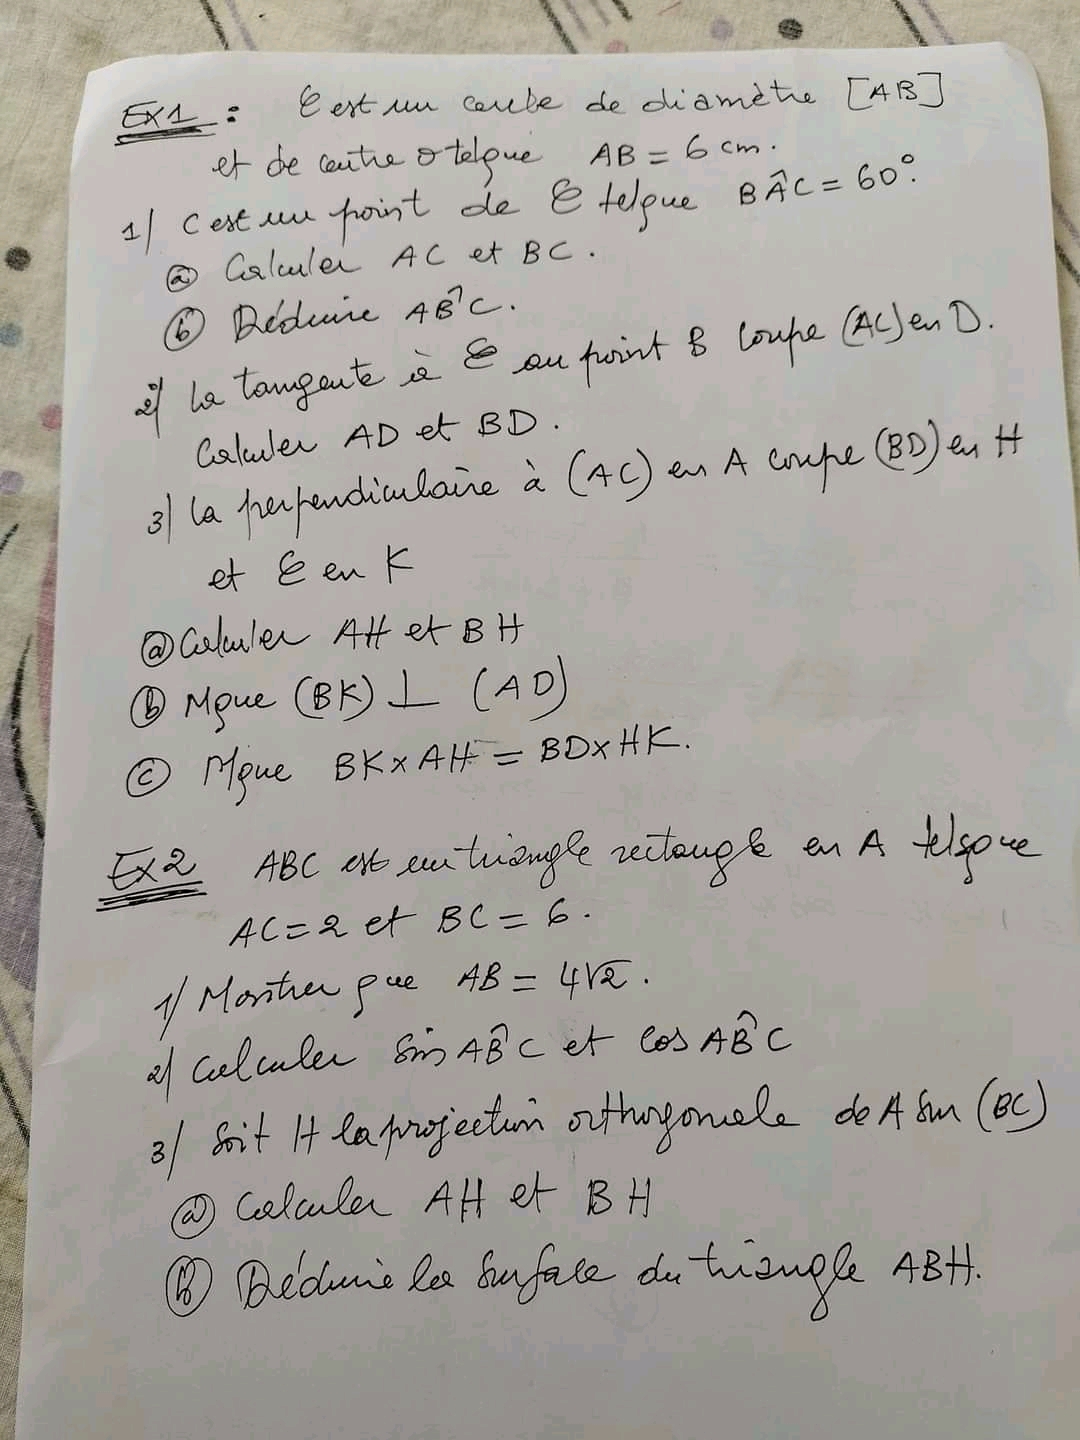 Ex1 : C est un cercle de diamètre [AB]
et de centre O telque AB = 6 cm.
1/ C est un point de C telque BÂC = 60°.
ⓐ Calculer AC et BC.
ⓑ Déduire AB̂C.
2/ La tangente à C au point B coupe (AC) en D.
Calculer AD et BD.
3/ La perpendiculaire à (AC) en A coupe (BD) en H
et C en K
ⓐ Calculer AH et BH
ⓑ Mque (BK) ⊥ (AD)
ⓒ Mque BK x AH = BD x HK.
Ex2 ABC est un triangle rectangle en A telsque
AC = 2 et BC = 6.
1/ Montrer que AB = 4√2.
2/ Calculer Sin AB̂C et Cos AB̂C
3/ Soit H la projection orthogonale de A sur (BC)
ⓐ Calculer AH et BH
ⓑ Déduire la surface du triangle ABH.